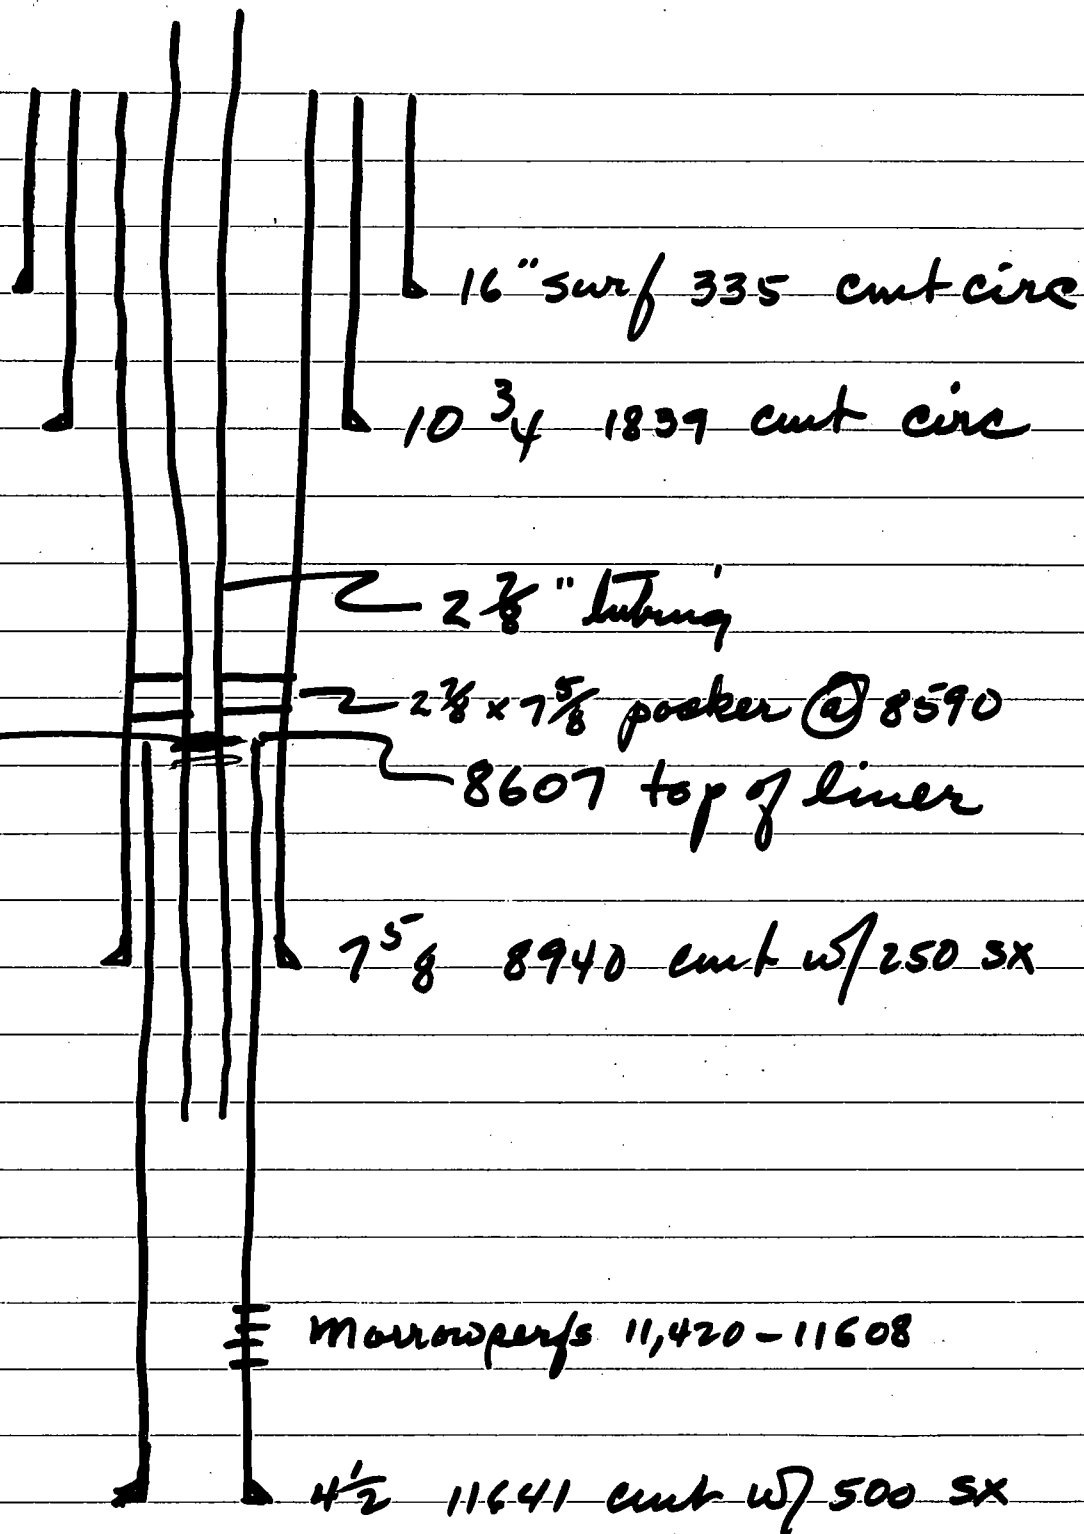 16" surf 335 cmt circ
10 3/4 1839 cmt circ
2 7/8" tubing
2 7/8 x 7 5/8 packer @ 8590
8607 top of liner
7 5/8 8940 cmt w/ 250 sx
Morrow perfs 11,420 - 11608
4 1/2 11641 cmt w/ 500 sx